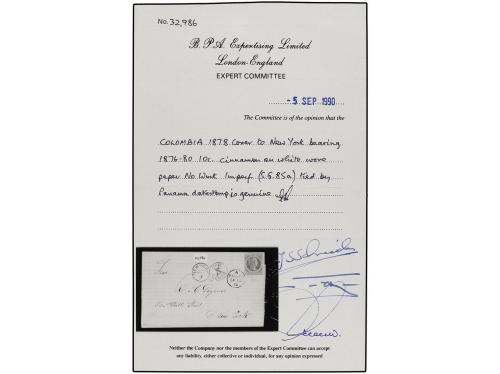 No. 32,986
B.P.A. Expertising Limited
London-England
EXPERT COMMITTEE
-5 SEP 1990
The Committee is of the opinion that the
COLOMBIA 1878 Cover to New York bearing
1876-80 10c. cinnamon on white wove
paper No Wmk Imperf (S.G. 85a) tied by
Panama datestamp is genuine
New York
Neither the Company nor the members of the Expert Committee can accept
any liability, either collective or individual, for any opinion expressed